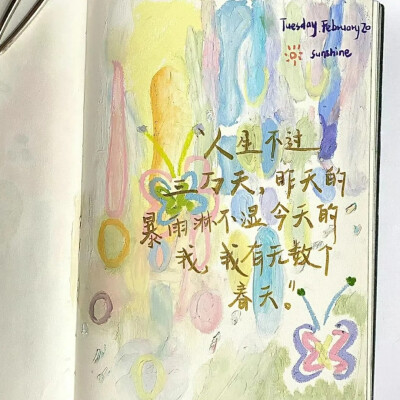 Tuesday. February 20
sunshine
人生不过
三万天，昨天的
暴雨淋不湿今天的
我，我有无数个
春天。”